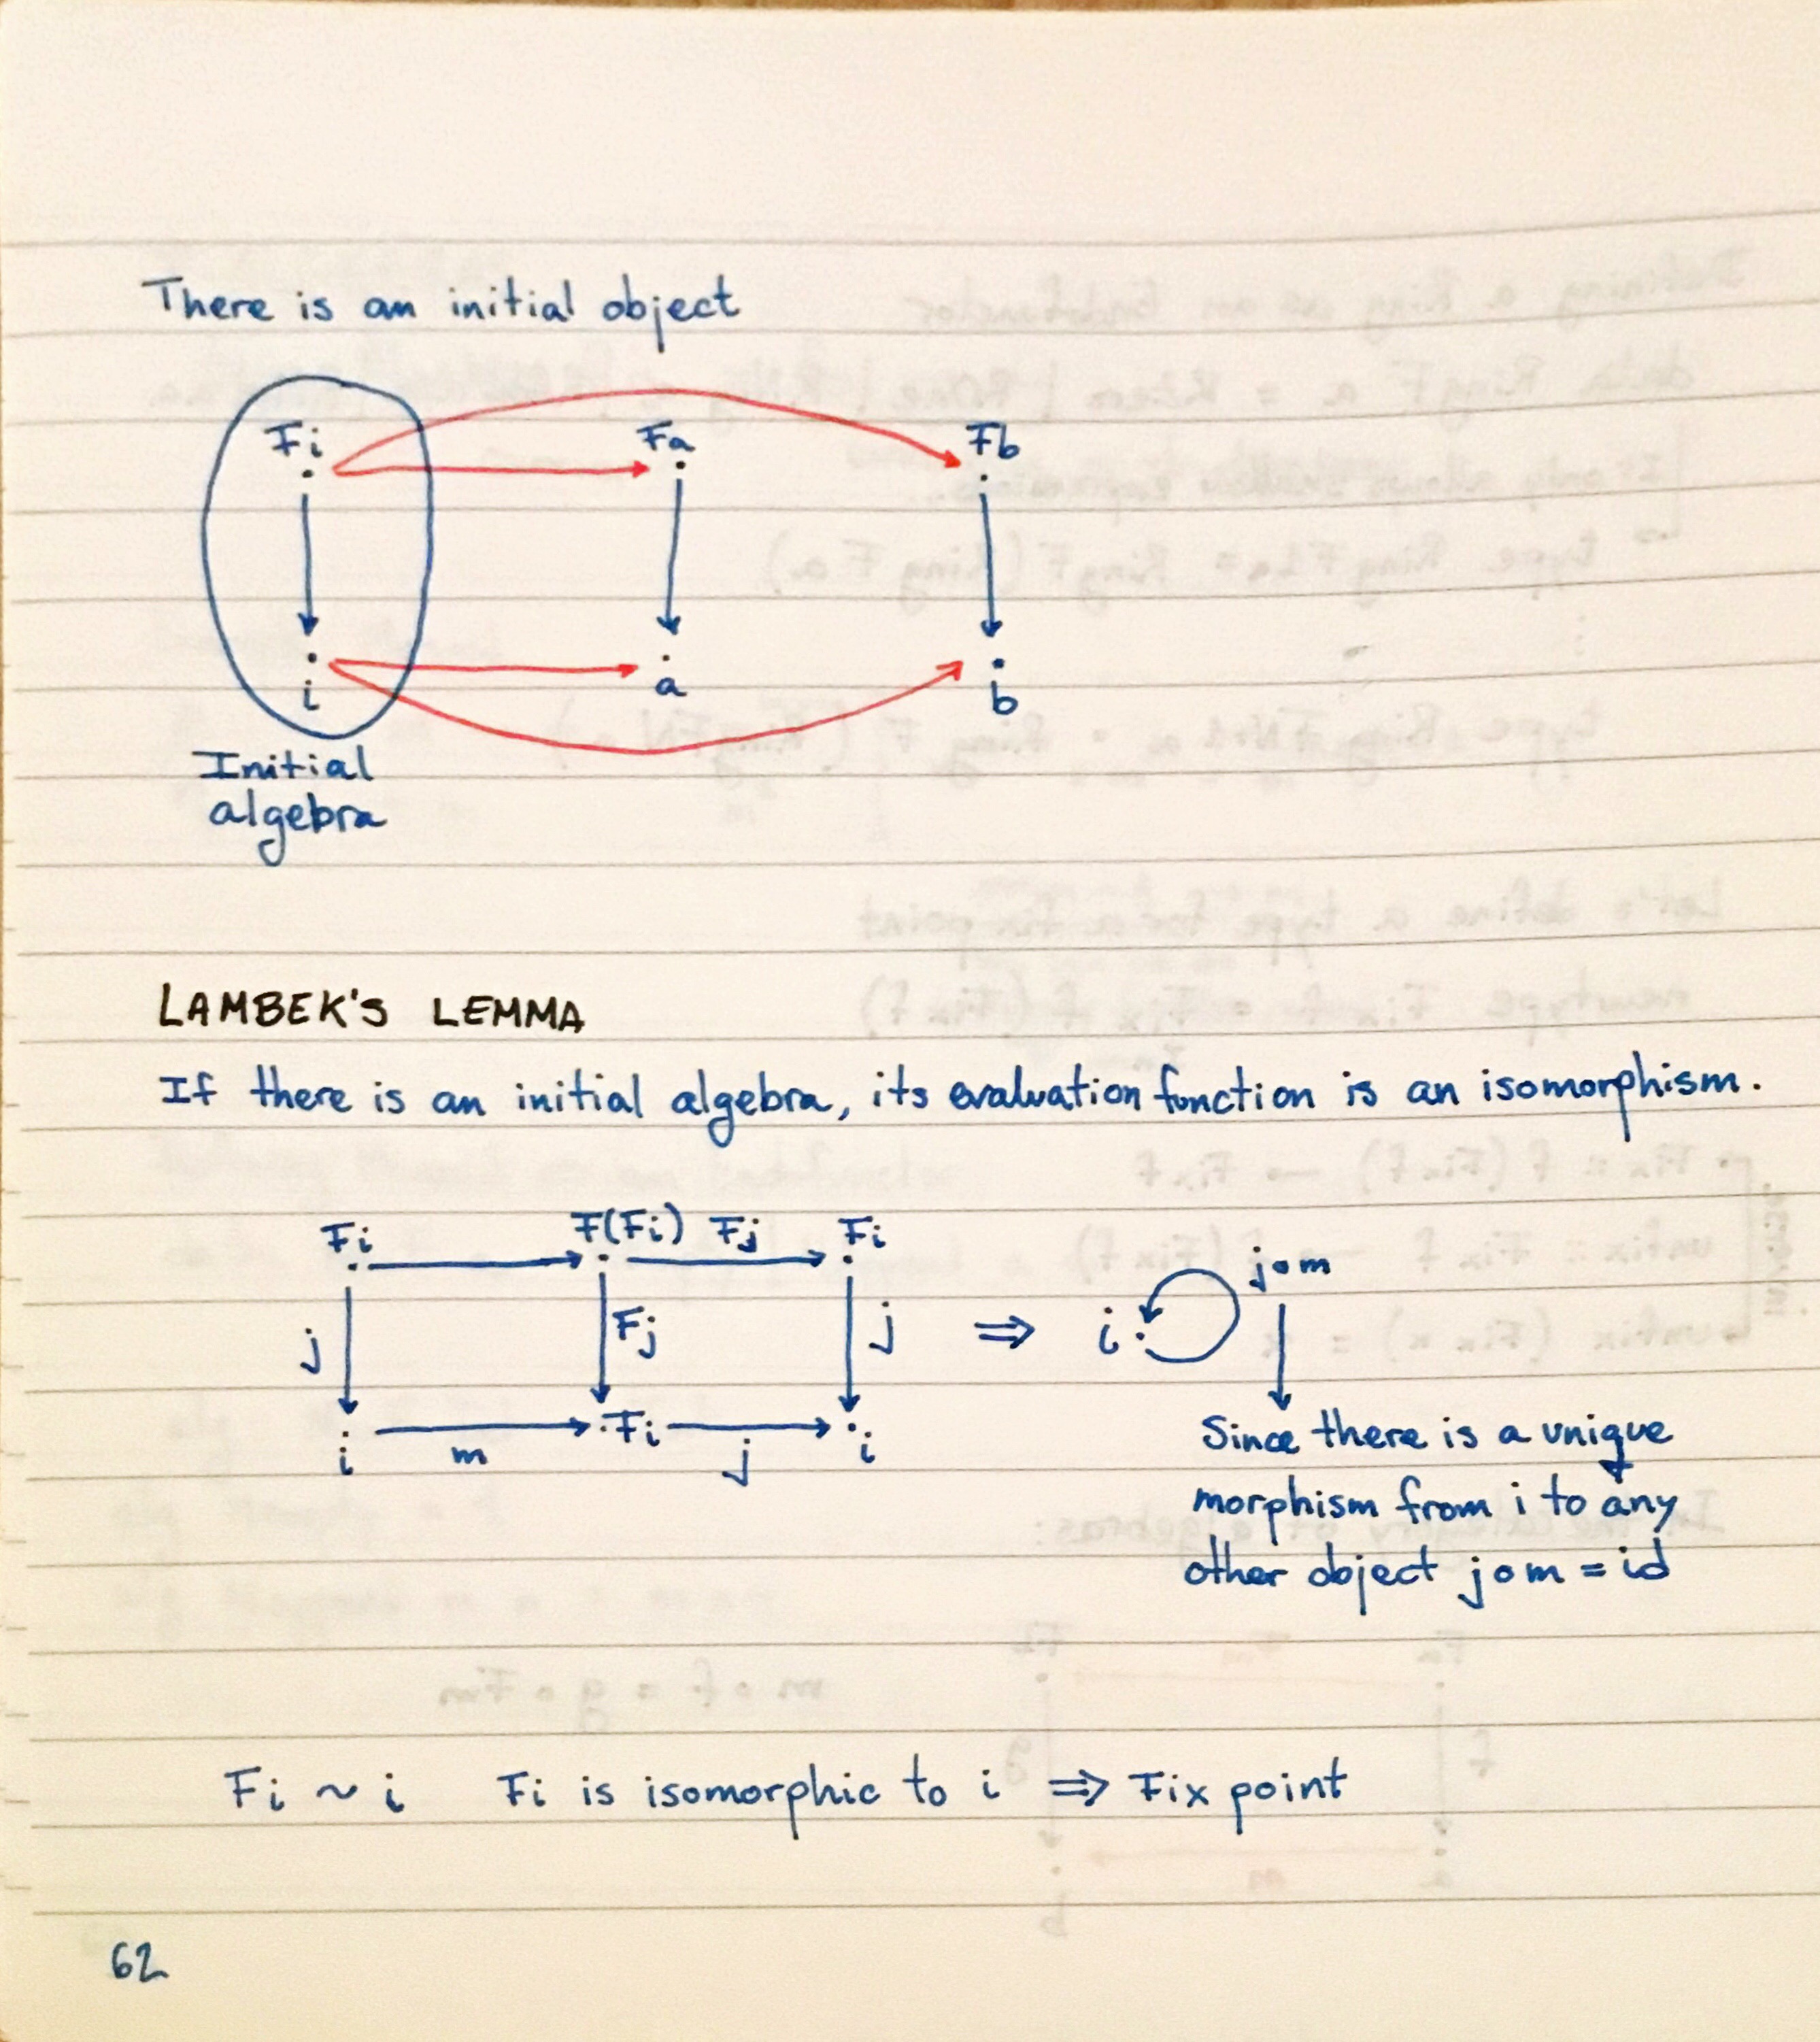 There is an initial object
Fi Fa Fb
i a b
Initial
algebra
LAMBEK'S LEMMA
If there is an initial algebra, its evaluation function is an isomorphism.
Fi F(Fi) Fj Fi
j Fj j ⇒ i jom
i m Fi j i
Since there is a unique
morphism from i to any
other object jom = id
Fi ~ i Fi is isomorphic to i ⇒ Fix point
62